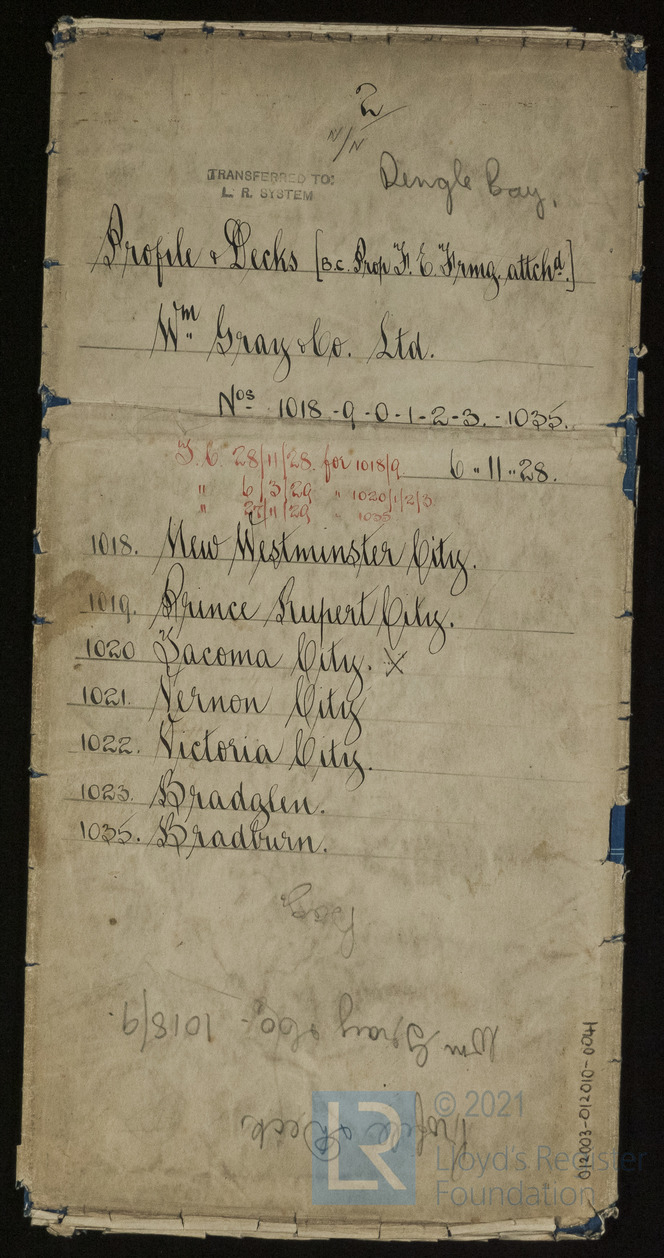 2
N/N
TRANSFERRED TO:
L. R. SYSTEM
Dingle Bay,
Profile & Decks [B.C. Prop F. E. Frmg. attchd.]
Wm Gray & Co. Ltd.
Nos 1018-9-0-1-2-3.-1035.
F.C. 28/11/28. for 1018/9
6-11-28.
" 6/3/29 " 1020/1/2/3
" 27/11/29 " 1035
1018. New Westminster City.
1019. Prince Rupert City.
1020 Tacoma City. X
1021. Vernon City
1022. Victoria City.
1023. Bradglen.
1035. Bradburn.
Profile & Deck
Wm Gray & Co. - 1018/9.
012003-012010-0041
© 2021
LR
Lloyd's Register
Foundation